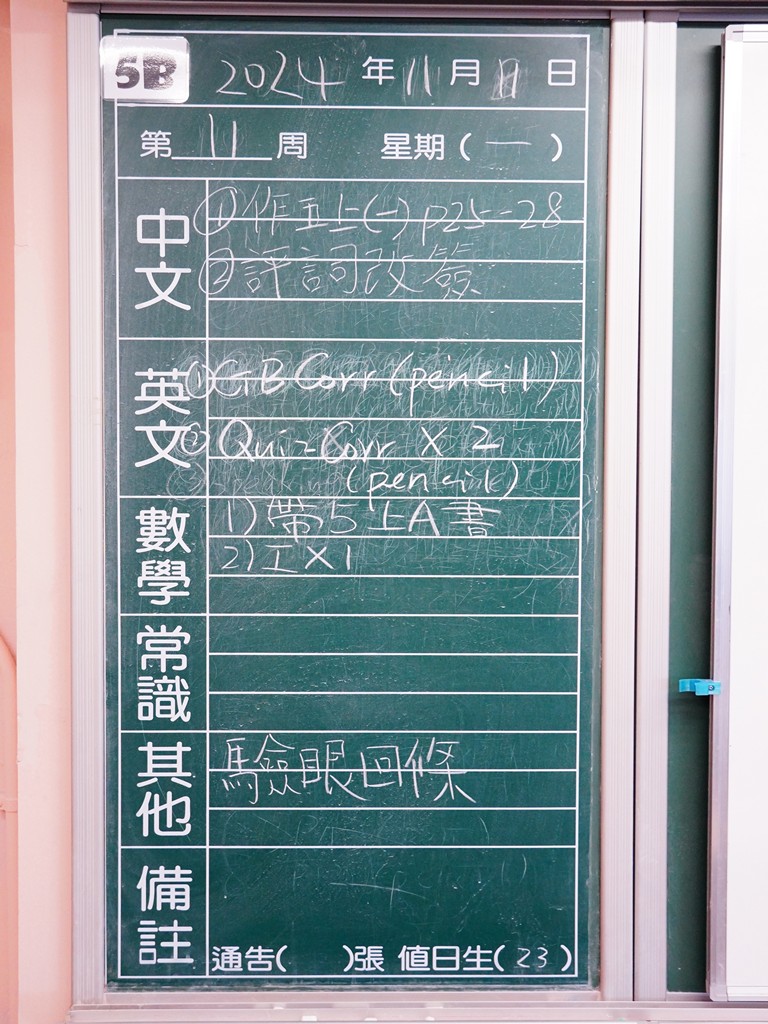 5B 2024年11月 日
第11周 星期(一)
中文
①作五上(一)p25-28
②評詞改簽
英文
①GB Corr (pencil)
② Quiz Corr X 2
(pencil)
數學
1)帶5上A書
2)工X1
常識
其他
驗眼回條
備註
通告( )張 值日生(23)